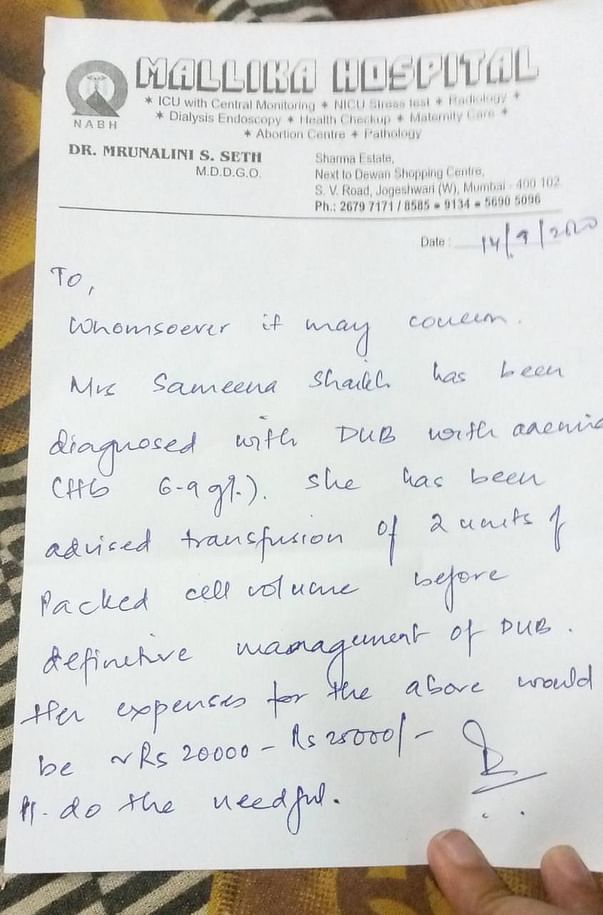 MALLIKA HOSPITAL
✶ ICU with Central Monitoring ✶ NICU Stress test ✶ Radiology ✶
✶ Dialysis Endoscopy ✶ Health Checkup ✶ Maternity Care ✶
✶ Abortion Centre ✶ Pathology
NABH
DR. MRUNALINI S. SETH
M.D.D.G.O.
Sharma Estate,
Next to Dewan Shopping Centre,
S. V. Road, Jogeshwari (W), Mumbai - 400 102.
Ph.: 2679 7171 / 8585 • 9134 • 5690 5096
Date : 14/9/2020
To,
Whomsoever it may concern.
Mrs Sameena Shaikh has been
diagnosed with DUB with anemia
(Hb 6.9 g%). She has been
advised transfusion of 2 units of
Packed cell volume before
definitive management of DUB.
Her expenses for the above would
be ~ Rs 20000 - Rs 25000/-
Pl. do the needful.